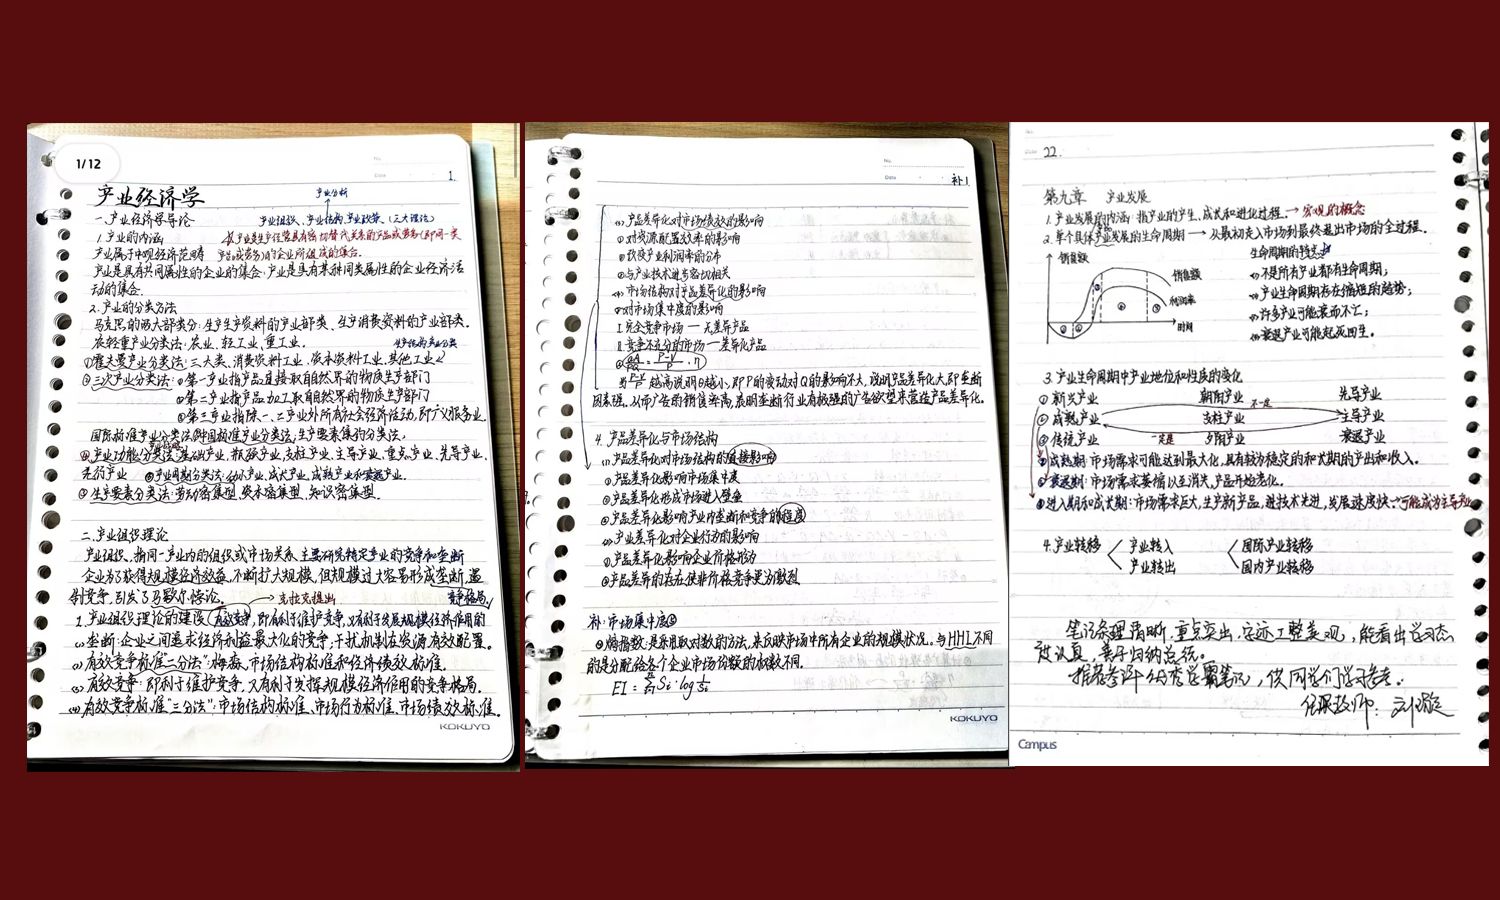 1/12
No.
Date
1.
产业经济学
产业分析
一.产业经济学导论
产业组织、产业结构、产业政策、(三大理论)
1.产业的内涵
产业是生产经营具有密切替代关系的产品或劳务(即同一类
产业属于中观经济范畴
产品或劳务)的企业所组成的集合。
产业是具有共同属性的企业的集合;产业是具有某种同类属性的企业经济活
动的集合.
2.产业的分类方法
马克思的两大部类分:生产生产资料的产业部类、生产消费资料的产业部类.
农轻重产业分类法:农业、轻工业、重工业.
①霍夫曼产业分类法:三大类、消费资料工业、资本资料工业、其他工业
②三次产业分类法:①第一产业指产品直接取自然界的物质生产部门
②第二产业指产品加工取自然界的物质生产部门
③第三产业指除一、二产业外所有社会经济活动,即广义服务业.
国际标准产业分类法,中国标准产业分类法,生产要素集约分类法,
产业功能分类法:基础产业、瓶颈产业、支柱产业、主导产业、重点产业、先导产业、
先行产业 产业周期分类法:幼小产业、成长产业、成熟产业和衰退产业.
生产要素分类法:劳动密集型、资本密集型、知识密集型.
二.产业组织理论
产业组织、指同一产业内的组织或市场关系、主要研究特定产业的竞争和垄断
企业为了获得规模经济效益,不断扩大规模,但规模过大容易形成垄断,遏
制竞争,引发了马歇尔悖论.
克拉克提出
竞争格局.
1.产业组织理论的建设(有效竞争),即有利于维护竞争,又有利于发展规模经济作用的
垄断:企业之间追求经济利益最大化的竞争,干扰机制在资源有效配置.
有效竞争标准"二分法":梅森、市场结构标准和经济绩效标准.
有效竞争:即利于维护竞争,又有利于发挥规模经济作用的竞争格局.
(4)有效竞争标准"三分法":市场结构标准、市场行为标准、市场绩效标准.
KOKUYO
No.
Date
补1
产品差异化对市场绩效的影响
①对资源配置效率的影响
②产业利润率的分布
③与产业技术进步密切相关
市场结构对产品差异化的影响
①对市场集中度的影响
I.完全竞争市场 — 无差异产品
II.竞争不充分的市场 — 差异化产品
越高说明θ越小,即P的变动对Q的影响不大,说明产品差异化大,即垄断
因素强.从而广告的销售率高,表明垄断行业有极强的广告欲望来营造产品差异化.
4.产品差异化与市场结构
(1)产品差异化对市场结构的直接影响
①产品差异化影响市场集中度
②产品差异化形成市场进入壁垒
③产品差异化影响产业内垄断和竞争的程度
产业差异化对企业行为的影响
①产品差异化影响企业价格行为
②产品差异的存在使非价格竞争更为激烈
补:市场集中度
熵指数:是采用取对数的方法,来反映市场中所有企业的规模状况.与HHI不同
的是分配给各个企业市场份额的权数不同.
EI = ∑Si·log 1/Si
KOKUYO
Date
22.
第九章 产业发展
1.产业发展的内涵:指产业的产生、成长和进化过程.→宏观的概念
2.单个具体产业发展的生命周期 → 从最初走入市场到最终退出市场的全过程.
销售额
生命周期的特点
销售额
不是所有产业都有生命周期;
利润率
产业生命周期存在缩短的趋势;
许多产业可能衰而不亡;
时间
衰退产业可能起死回生.
3.产业生命周期中产业地位和性质的变化
①新兴产业 朝阳产业 不一定 先导产业
②成熟产业 支柱产业 主导产业
③传统产业 一定是 夕阳产业 衰退产业
成熟期:市场需求可能达到最大化,具有较为稳定的和长期的产出和收入.
衰退期:市场需求萎缩以至消失,产品开始老化.
进入期和成长期:市场需求巨大,生产新产品,进技术先进,发展速度快→可能成为主导业
4.产业转移 产业转入 国际产业转移
产业转出 国内产业转移
笔记条理清晰,重点突出,字迹工整美观,能看出学习态
度认真,善于归纳总结。
推荐参评优秀学霸笔记,供同学们学习参考.
任课教师:
Campus